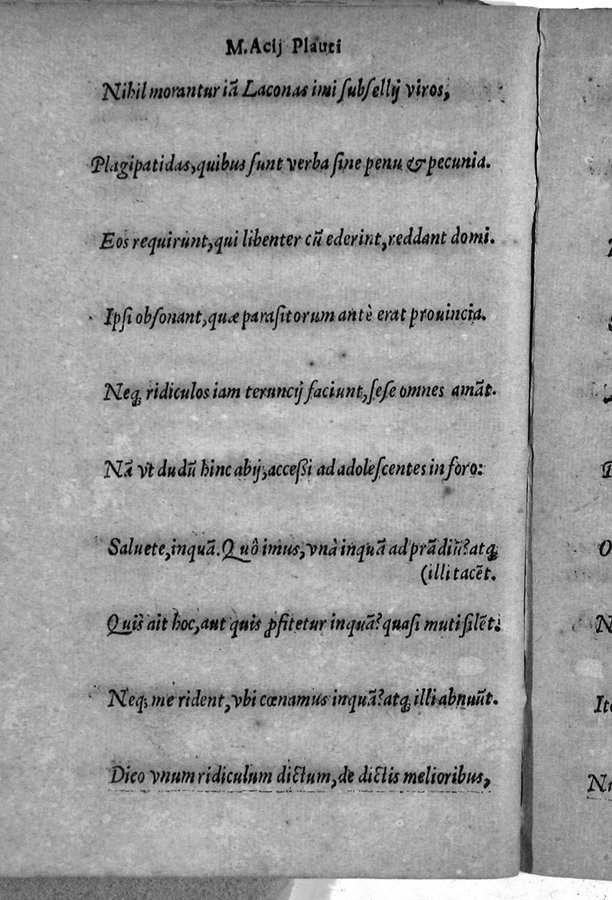 M. Acij Plauti
Nihil morantur iã Laconas imi subsellij viros,
Plagipatidas, quibus sunt verba sine penu & pecunia.
Eos requirunt, qui libenter cũ ederint, reddant domi.
Ipsi obsonant, quæ parasitorum antè erat prouincia.
Neq; ridiculos iam teruncij faciunt, sese omnes amãt.
Nã vt dudũ hinc abij, accessi ad adolescentes in foro:
Saluete, inquã. Quô imus, vnà inquã ad prãdiũ? atq;
(illi tacẽt.
Quis ait hoc, aut quis ꝓfitetur inquã? quasi muti silẽt.
Neq; me rident, vbi cœnamus inquã? atq; illi abnuũt.
Dico vnum ridiculum dictum, de dictis melioribus,